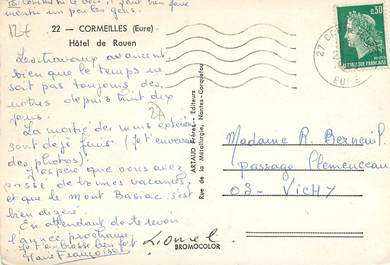 22 - CORMEILLES (Eure)
Hôtel de Rouen
12€
Les travaux avancent,
bien que le temps ne
soit pas toujours des
nôtres depuis huit dix
jours.
La moitié des murs
sont déjà finis. (je t'enverrai
des photos).
J'espère que vous avez
passé de bonnes vacances,
et que le mont Basiac est
bien digéré.
En attendant de te revoir
l'année prochaine
Je t'embrasse bien fort
Marie Françoise
Lionel
27
ARTAUD Frères - Editeurs
Rue de la Métallurgie, Nantes-Carquefou
BROMOCOLOR
0,30
REPUBLIQUE FRANÇAISE
27
EURE
Madame R. Berneuil
passage Clemenceau
03 - VICHY